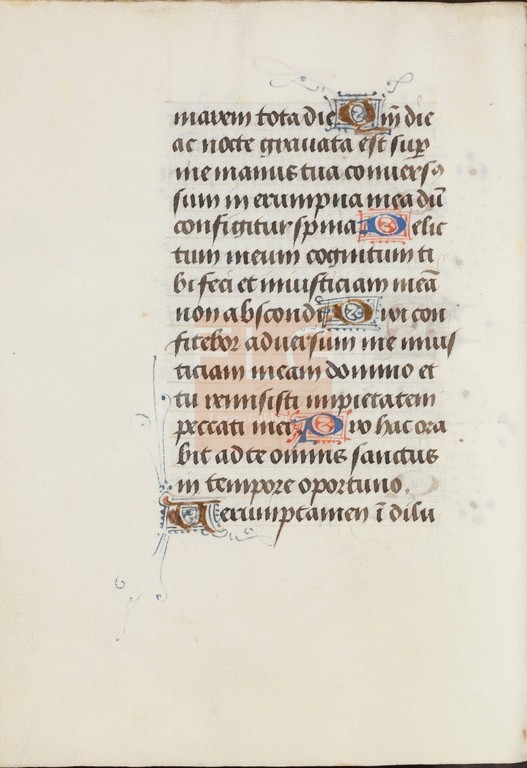 marem tota die Qm̄ die
ac nocte gravata est sup̄
me manus tua conversꝰ
sum in erumpna mea dū
configitur spina Delic
tum meum cognitum ti
bi feci et iniusticiam meā
non abscondi Dixi con
fitebor adversum me inius
ticiam meam domino et
tu remisisti impietatem
peccati mei Pro hac ora
bit ad te omnis sanctus
in tempore oportuno.
Verumptamen ī dilu